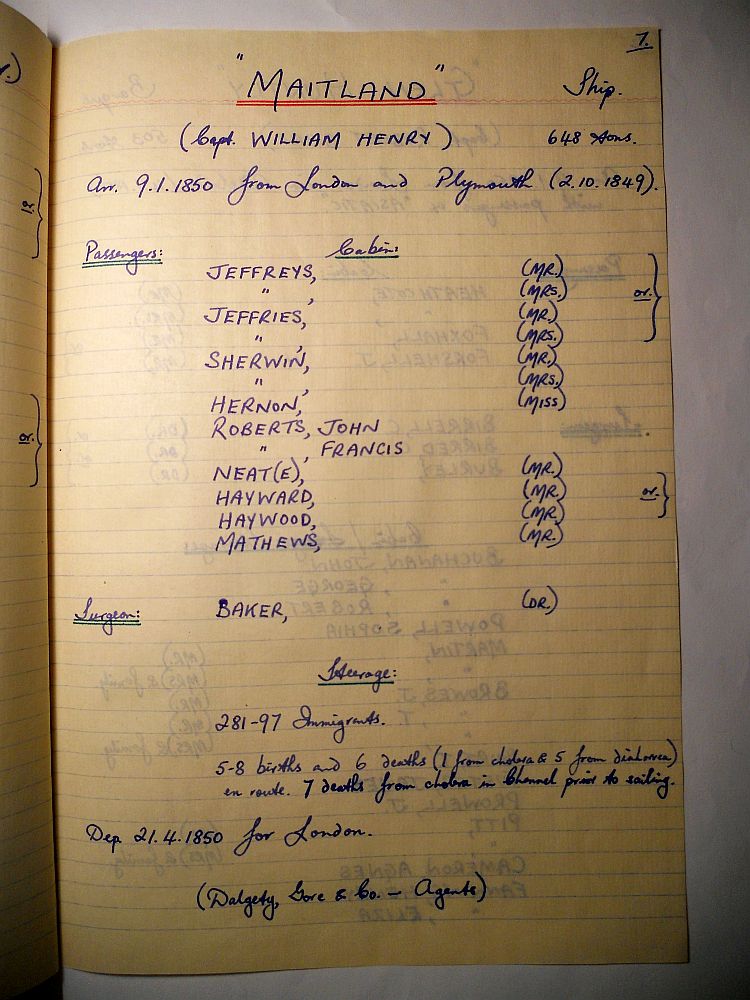 7.
"MAITLAND" Ship.
(Capt. WILLIAM HENRY) 648 tons.
Arr. 9.1.1850 from London and Plymouth (2.10.1849).
Passengers: Cabin:
JEFFREYS, (MR.)
" , (MRS.) or.
JEFFRIES, (MR.)
" , (MRS.)
SHERWIN, (MR.)
" , (MRS.)
HERNON, (MISS)
ROBERTS, JOHN
" , FRANCIS
NEAT(E), (MR.)
HAYWARD, (MR.) or.
HAYWOOD, (MR.)
MATHEWS, (MR.)
Surgeon: BAKER, (DR.)
Steerage:
281-97 Immigrants.
5-8 births and 6 deaths (1 from cholera & 5 from diahorrea)
en route. 7 deaths from cholera in Channel prior to sailing.
Dep. 21.4.1850 for London.
(Dalgety, Gore & Co. - Agents)